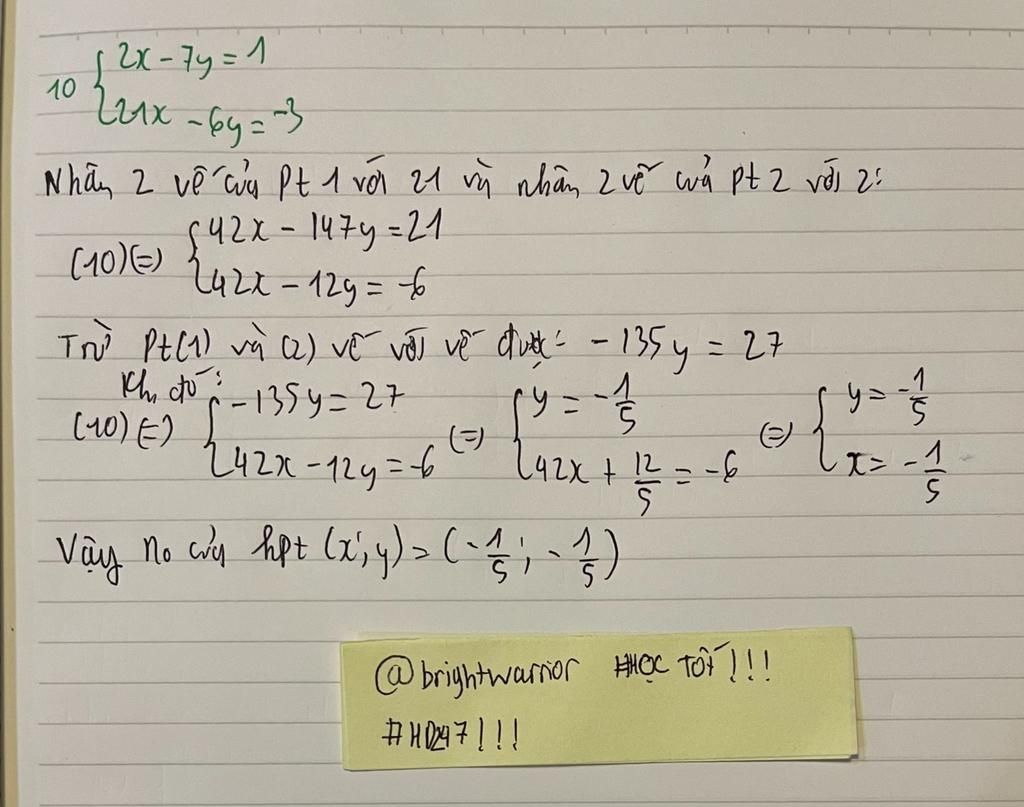 10 { 2x - 7y = 1
21x - 6y = -3
Nhân 2 vế của pt 1 với 21 và nhân 2 vế của pt 2 với 2:
(10) (=) { 42x - 147y = 21
42x - 12y = -6
Trừ Pt(1) và (2) vế với vế được: -135y = 27
Khi đó:
(10) (=) { -135y = 27 (=) { y = -1/5 (=) { y = -1/5
42x - 12y = -6 42x + 12/5 = -6 x = -1/5
Vậy no của hpt (x; y) = (-1/5; -1/5)
@brightwarrior #HỌC TỐT!!!
#HD247!!!